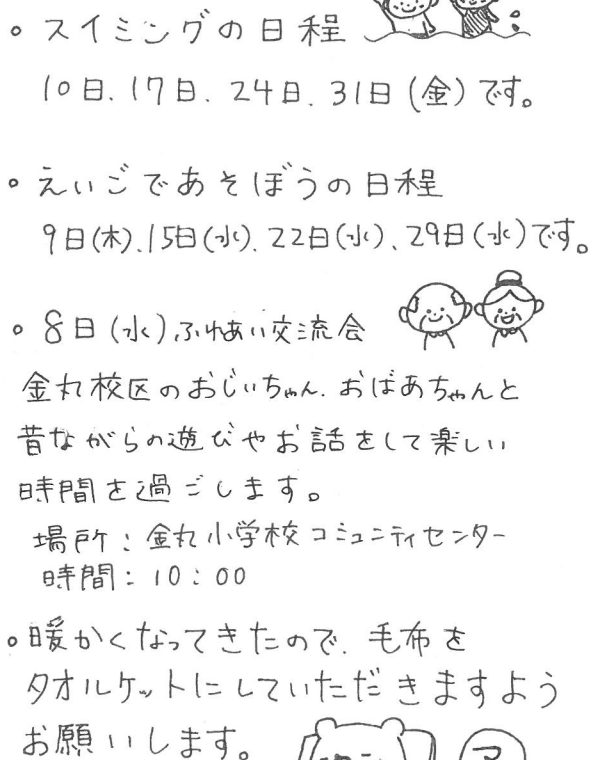 。スイミングの日程
10日、17日、24日、31日(金)です。
。えいごであそぼうの日程
9日(木)、15日(水)、22日(水)、29日(水)です。
。8日(水)ふれあい交流会
金丸校区のおじいちゃん、おばあちゃんと
昔ながらの遊びやお話をして楽しい
時間を過ごします。
場所：金丸小学校コミュニティセンター
時間：10：00
。暖かくなってきたので、毛布を
タオルケットにしていただきますよう
お願いします。